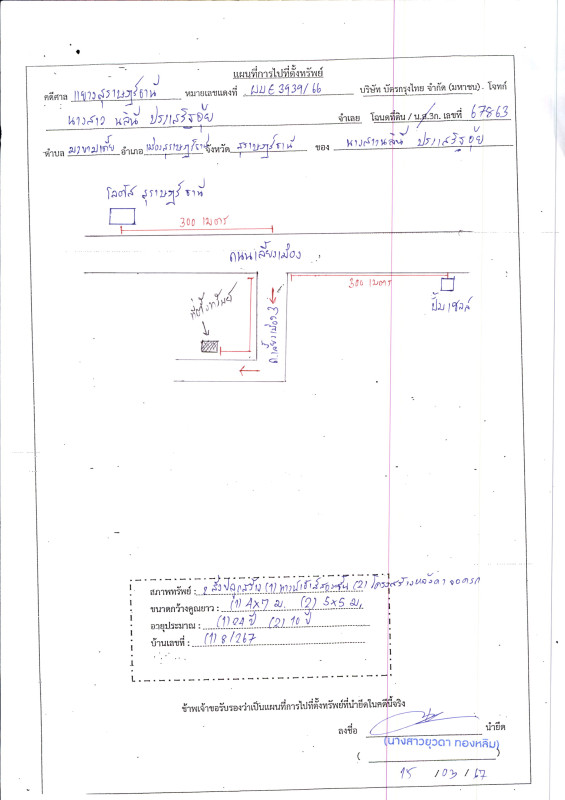 แผนที่การไปที่ตั้งทรัพย์
คดีศาล แขวงสุราษฎร์ธานี หมายเลขแดงที่ ผบE3939/66 บริษัท บัตรกรุงไทย จำกัด (มหาชน) โจทก์
นางสาว นลินี จำเลย โฉนดที่ดิน / น.ส.3ก. เลขที่ 67863
ตำบล มะขามเตี้ย อำเภอ เมืองสุราษฎร์ธานี จังหวัด สุราษฎร์ธานี ของ นางสาวนลินี
โลตัส สุราษฎร์ธานี
300 เมตร
ถนนเลี่ยงเมือง
300 เมตร
ปั๊มเชลล์
ที่ตั้งทรัพย์
ถ.เลี่ยงเมือง 3
สภาพทรัพย์ : 2 สิ่งปลูกสร้าง (1) (2) โครงสร้างหลังคา จอดรถ
ขนาดกว้างคูณยาว : (1) 4x7 ม. (2) 5x5 ม.
อายุประมาณ : (1) 04 ปี (2) 10 ปี
บ้านเลขที่ : (1) 8/267
ข้าพเจ้าขอรับรองว่าเป็นแผนที่การไปที่ตั้งทรัพย์ที่นำยึดในคดีนี้จริง
ลงชื่อ นำยึด
(นางสาวยุวดา ทองหลิม)
( )
15 /03 /67